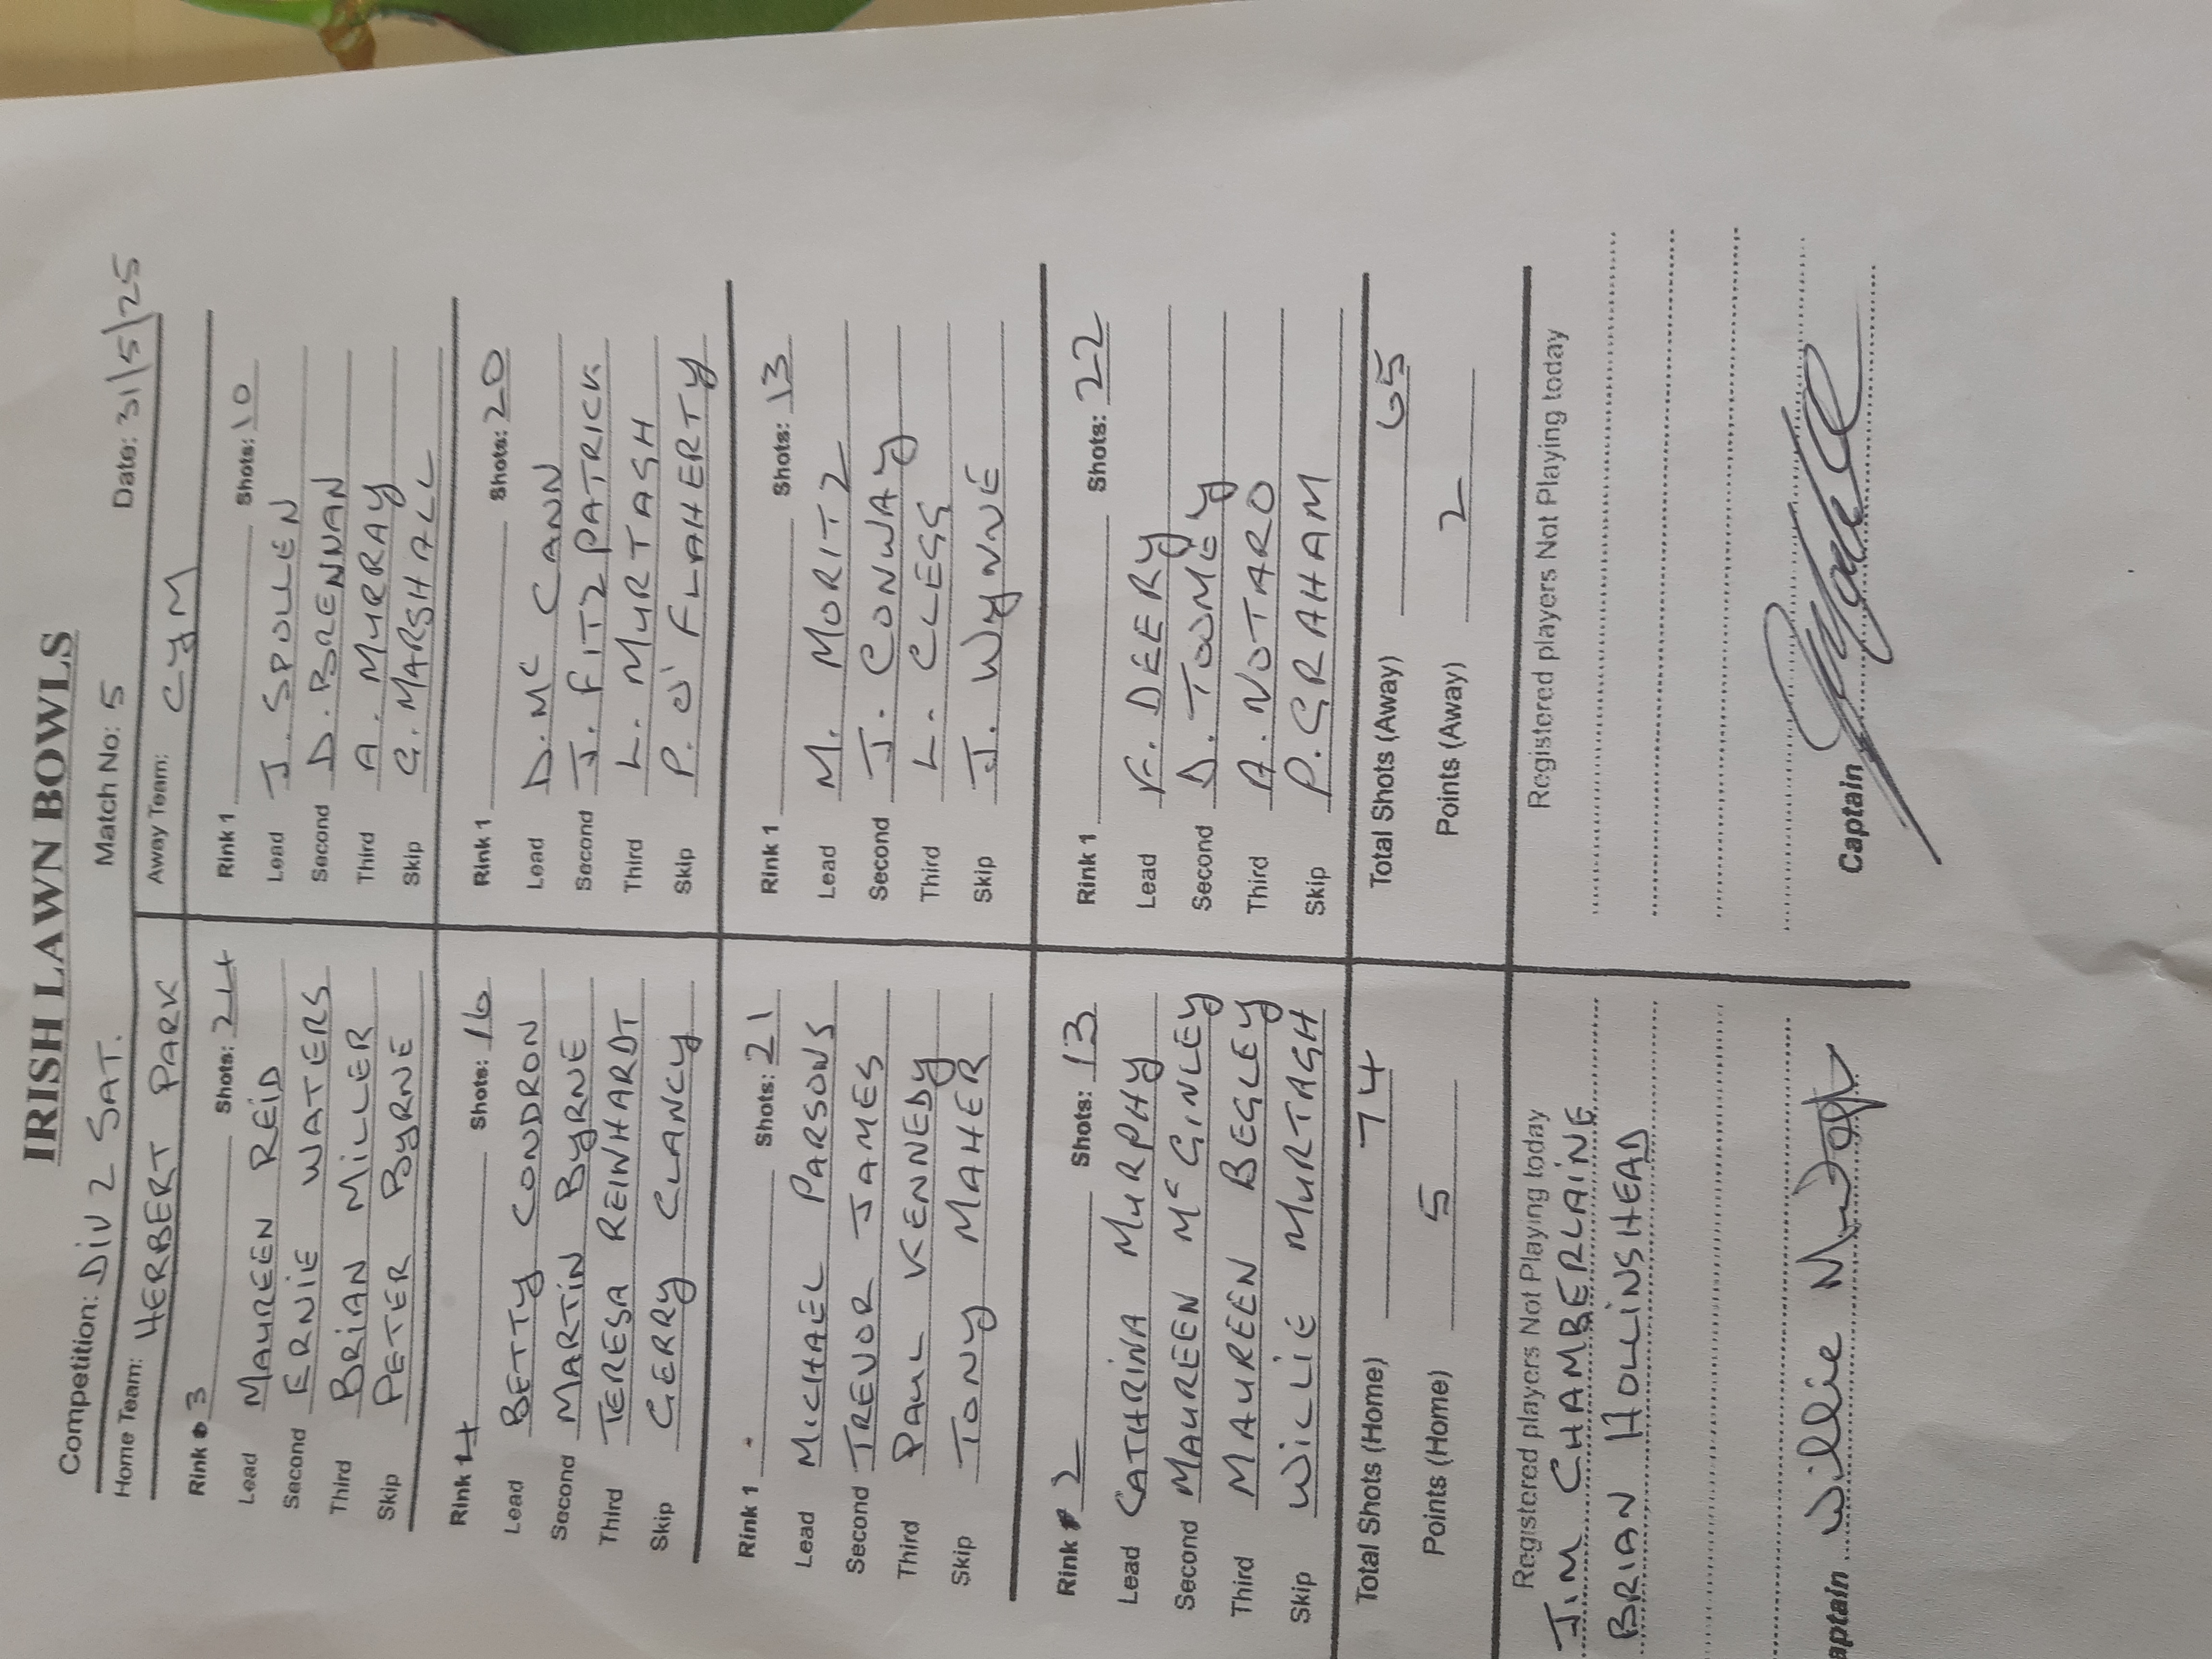 IRISH LAWN BOWLS
Competition: DIV 2 SAT. Match No: 5 Date: 31/5/25
Home Team: HERBERT PARK Away Team: CYM
Rink 3 Shots: 24 Rink 1 Shots: 10
Lead MAUREEN REID Lead J SPOLLEN
Second ERNIE WATERS Second D. BRENNAN
Third BRIAN MILLER Third A. MURRAY
Skip PETER BYRNE Skip G. MARSHALL
Rink 4 Shots: 16 Rink 1 Shots: 20
Lead BETTY CONDRON Lead D. Mc CANN
Second MARTIN BYRNE Second J. FITZPATRICK
Third TERESA REINHARDT Third L. MURTAGH
Skip GERRY CLANCY Skip P. O'FLAHERTY
Rink 1 Shots: 21 Rink 1 Shots: 13
Lead MICHAEL PARSONS Lead M. MORITZ
Second TREVOR JAMES Second J. CONWAY
Third PAUL KENNEDY Third L. CLEGG
Skip TONY MAHER Skip J. WYNNE
Rink 2 Shots: 13 Rink 1 Shots: 22
Lead CATHRINA MURPHY Lead DEERY
Second MAUREEN Mc GINLEY Second D. TOOMEY
Third MAUREEN BEGLEY Third A. NOTARO
Skip WILLIE MURTAGH Skip P. GRAHAM
Total Shots (Home) 74 Total Shots (Away) 65
Points (Home) 5 Points (Away) 2
Registered players Not Playing today Registered players Not Playing today
JIM CHAMBERLAINE
BRIAN HOLLINSHEAD
aptain Willie Captain